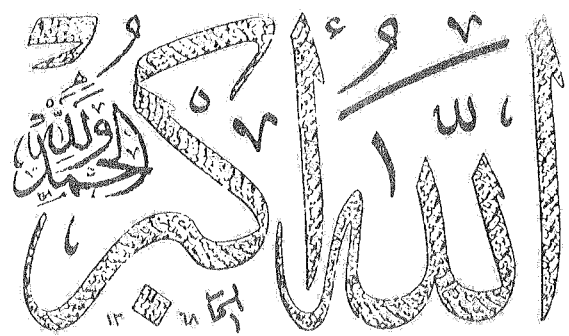 الله أكبر
ولله الحمد